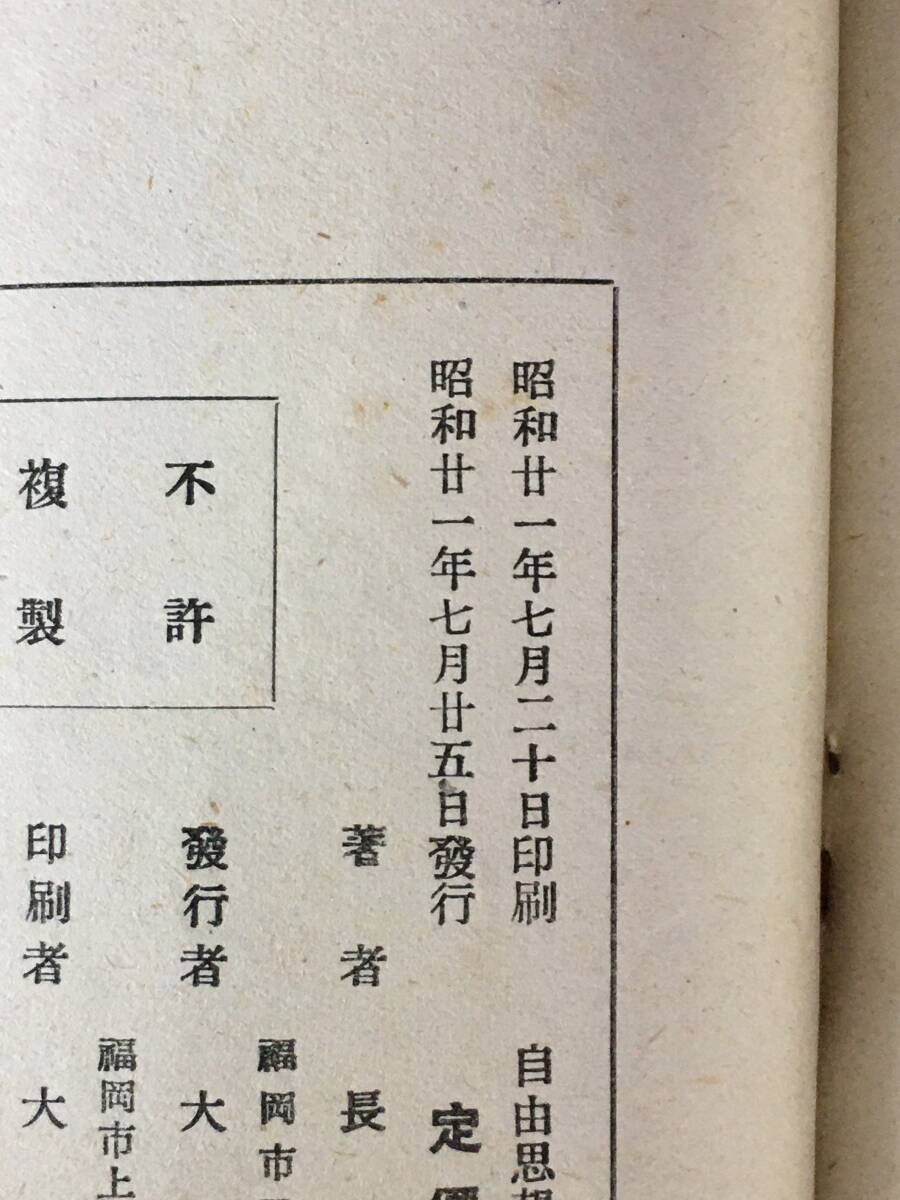 昭和廿一年七月二十日印刷
自由思想
昭和廿一年七月廿五日發行
定價
著者
長
福岡市
發行者
大
福岡市上
不許
複製
印刷者
大